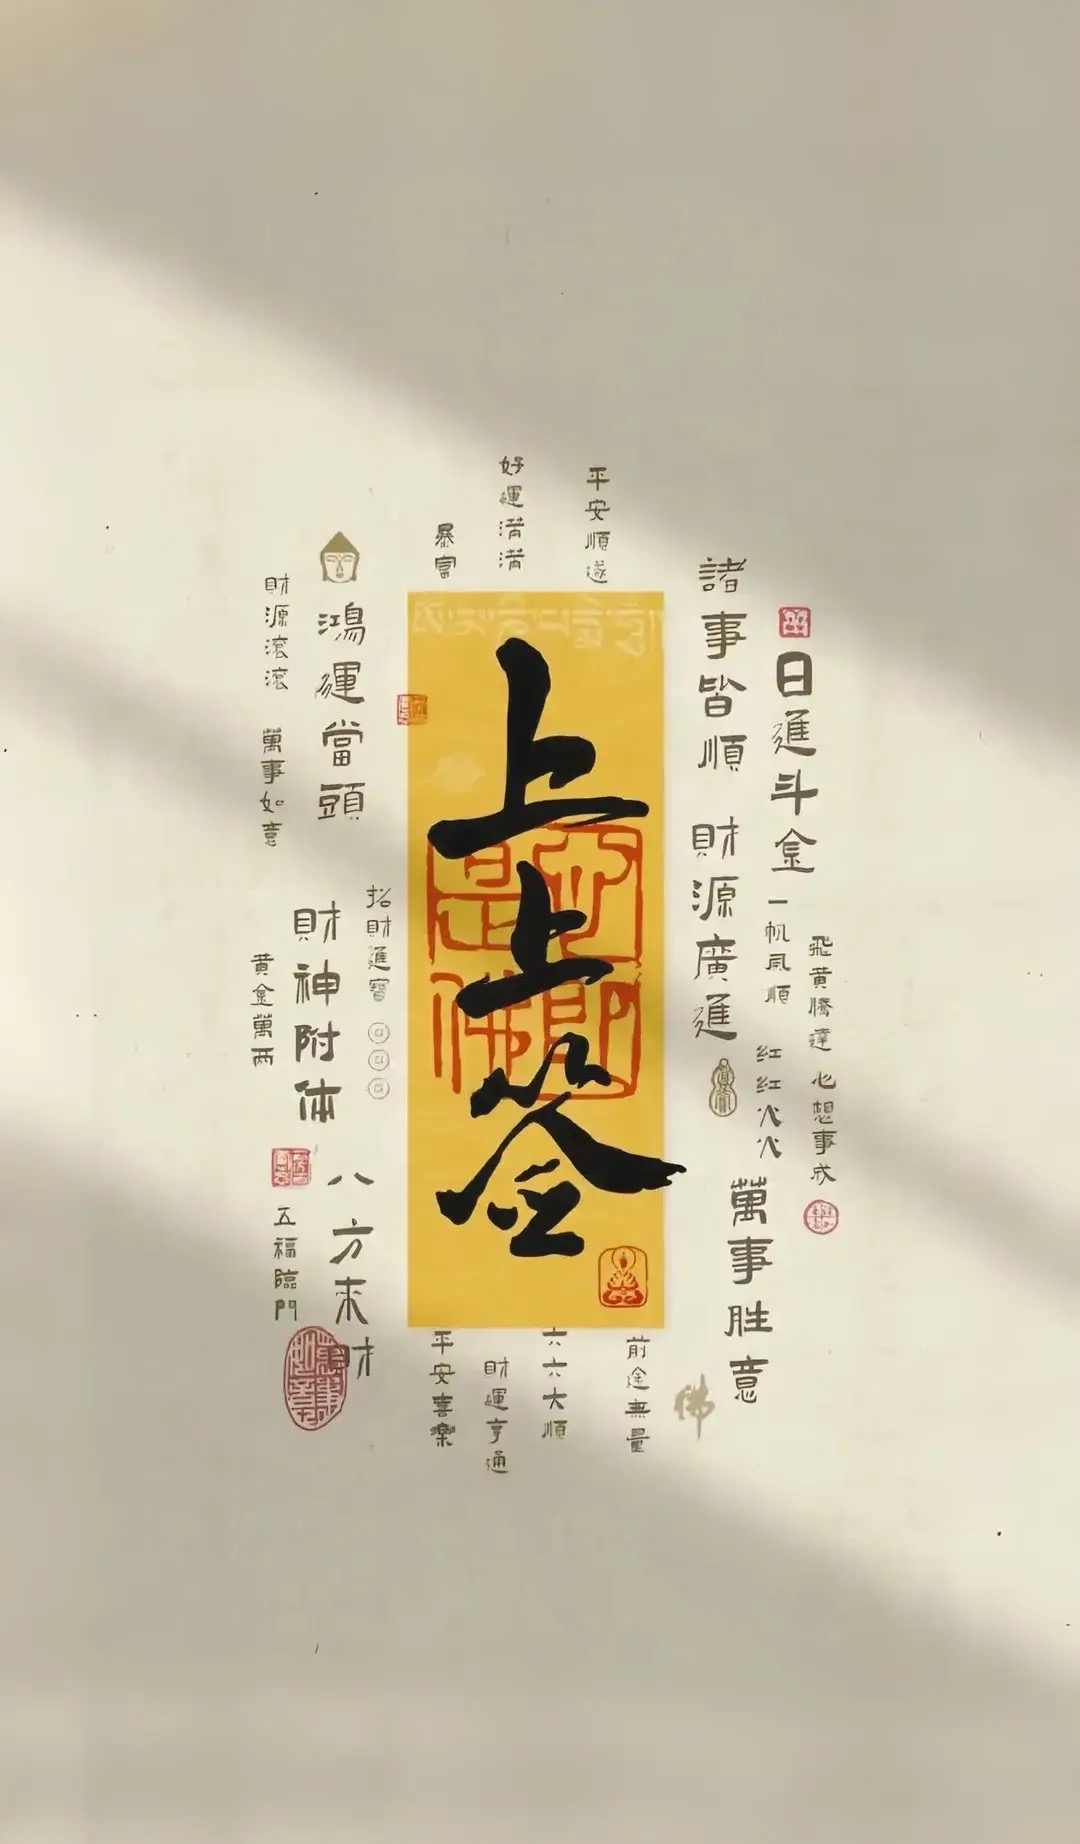 上上签
好運满满
平安順遂
暴富
諸事皆順
財源廣進
日進斗金
一帆風順
飛黄騰達
心想事成
红红火火
萬事胜意
佛
鴻運當頭
財源滚滚
萬事如意
招財進寶
財神附体
黄金萬两
八方来財
五福臨門
平安喜樂
財運亨通
六六大順
前途無量